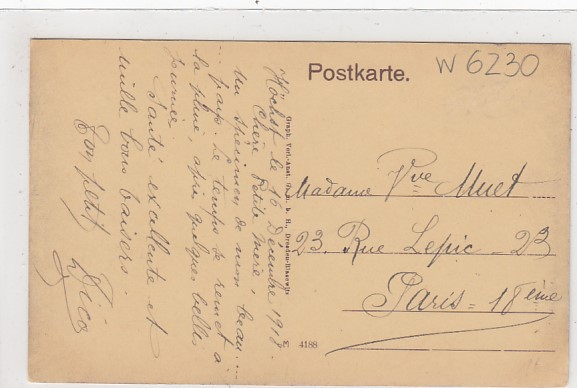 Postkarte.
W 6230
Höchst le 16 Décembre 1918.
Chère Petite Mère,
Un spécimen de mon beau....
... pays. Le temps se remet à
la pluie, après quelques belles
journées.
Santé excellente et
mille bons baisers.
Ton petit
Madame Vve Muet
23. Rue Lepic - 23
Paris - 18ème
Graph. Verl.-Anst. G. m. b. H., Dresden-Blasewitz
4188